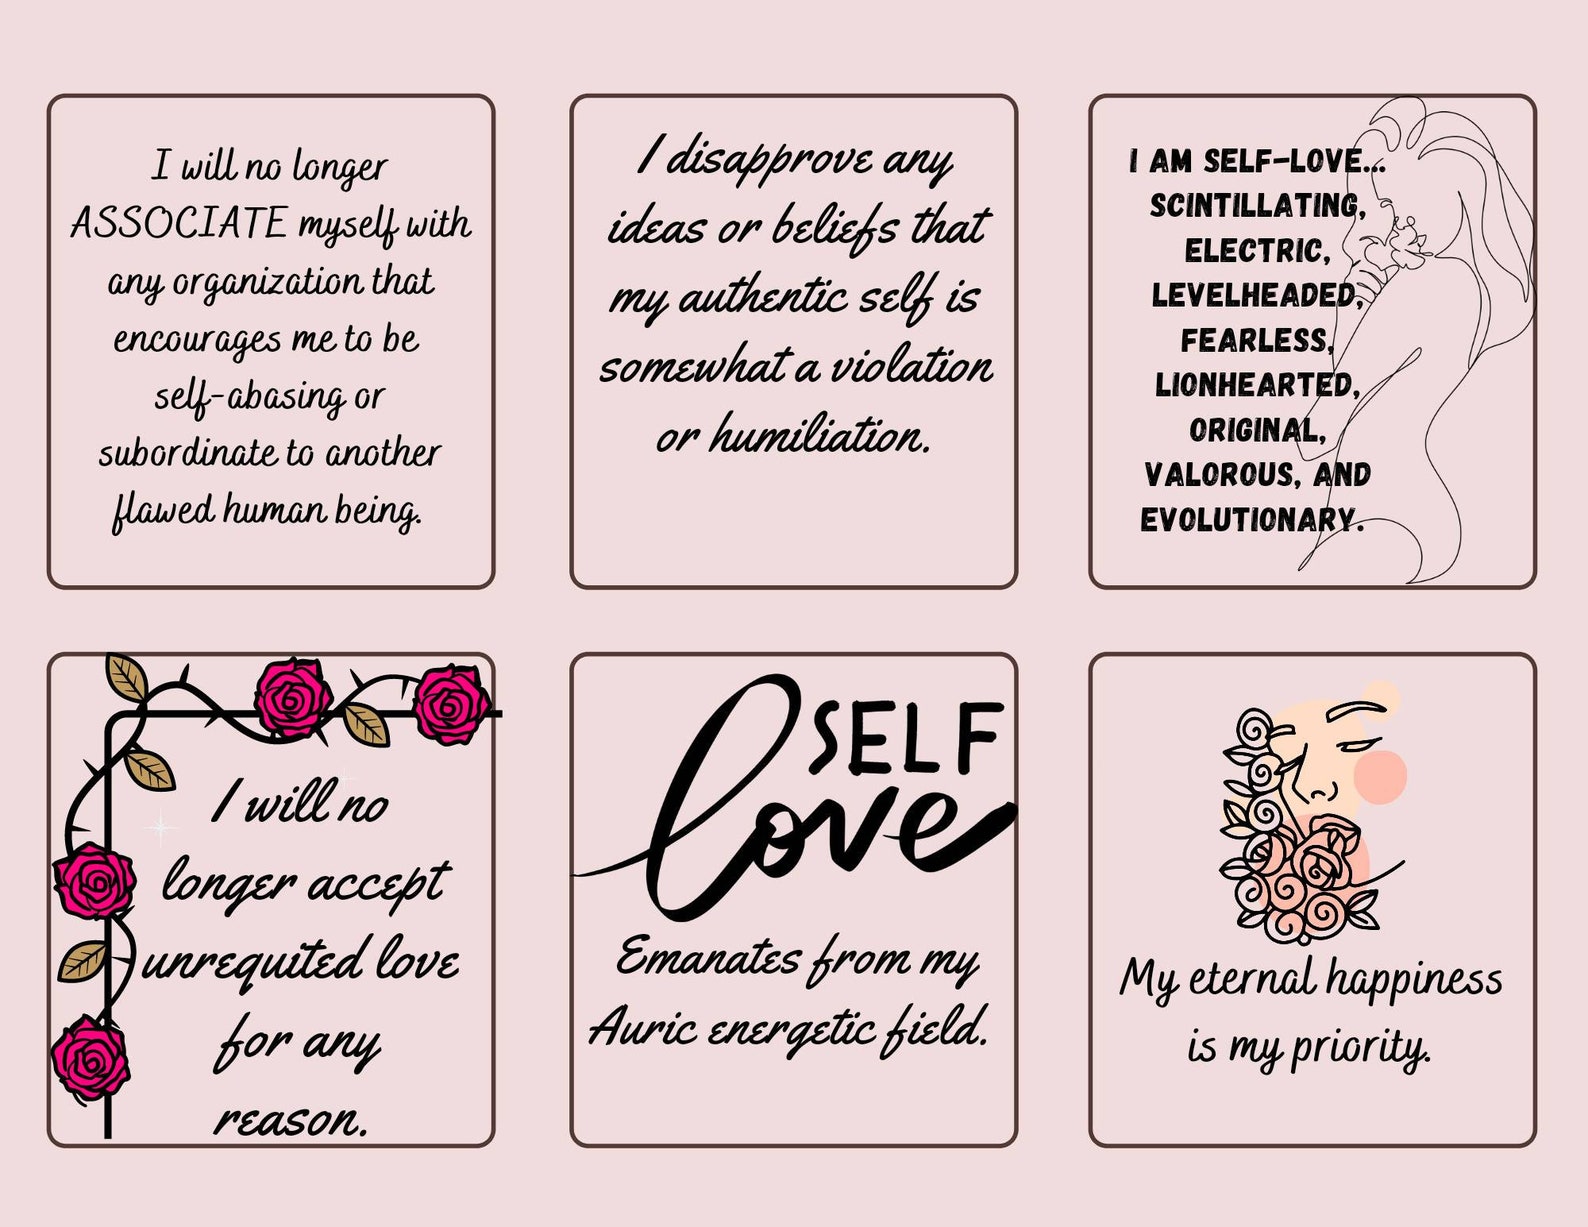 I will no longer
ASSOCIATE myself with
any organization that
encourages me to be
self-abasing or
subordinate to another
flawed human being.
I disapprove any
ideas or beliefs that
my authentic self is
somewhat a violation
or humiliation.
I AM SELF-LOVE...
SCINTILLATING,
ELECTRIC,
LEVELHEADED,
FEARLESS,
LIONHEARTED,
ORIGINAL,
VALOROUS, AND
EVOLUTIONARY.
I will no
longer accept
unrequited love
for any
reason.
SELF
love
Emanates from my
Auric energetic field.
My eternal happiness
is my priority.